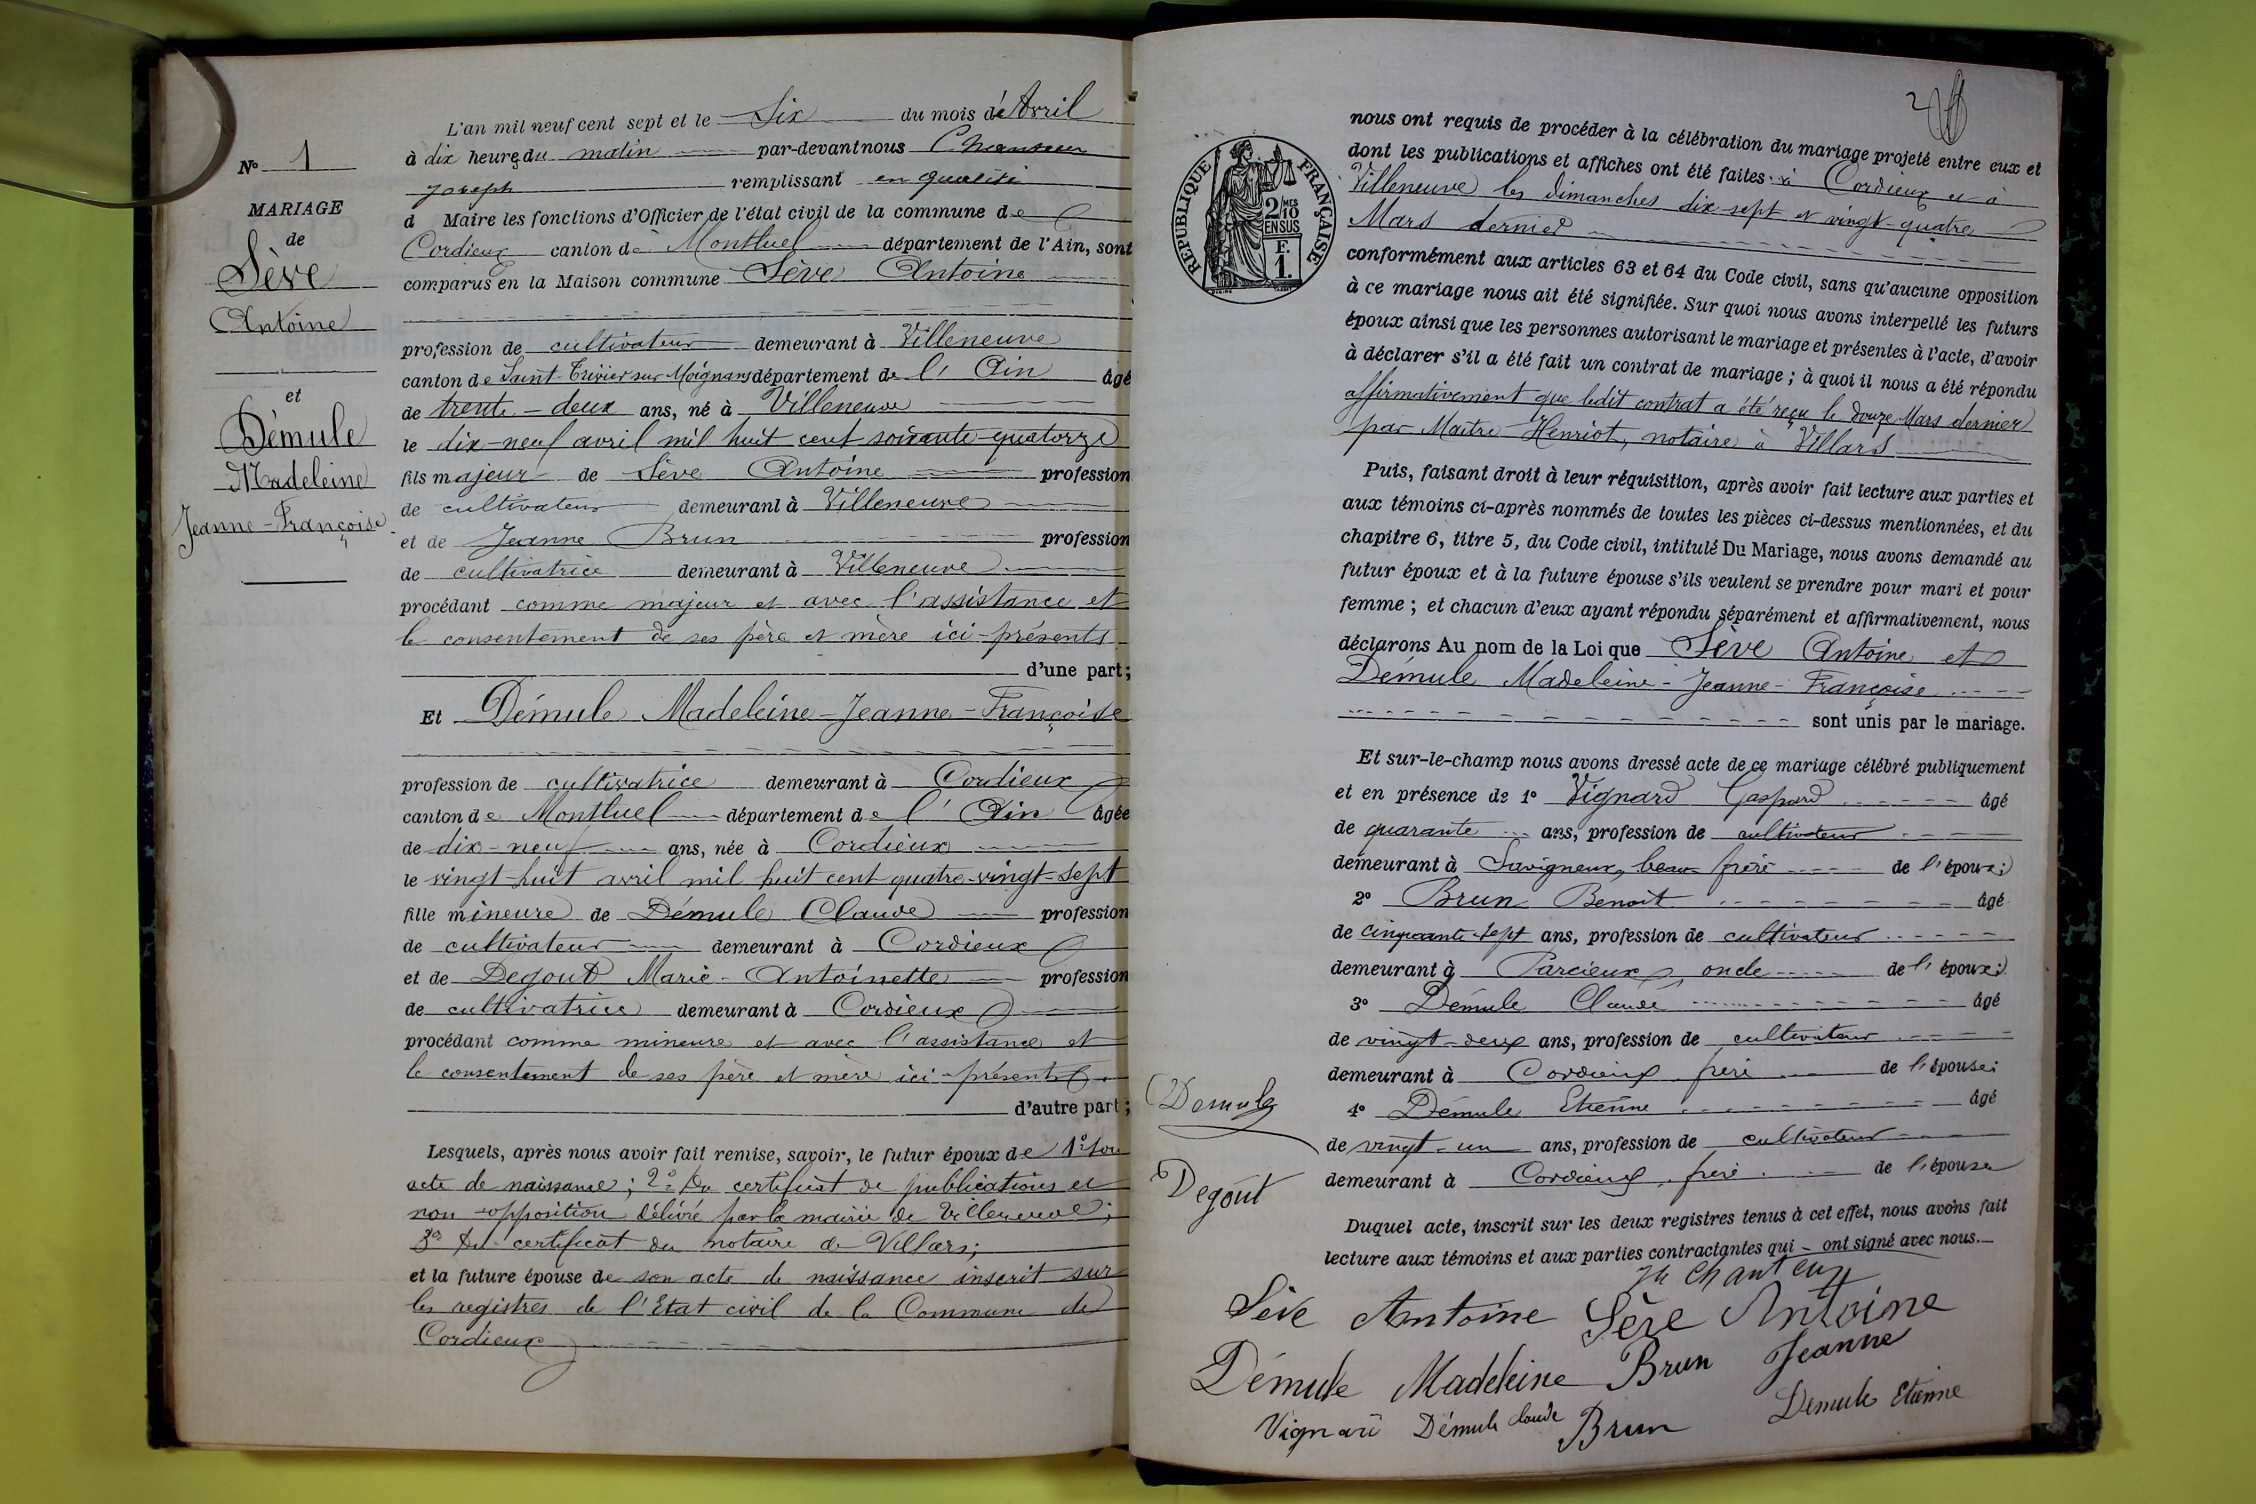 L'an mil neuf cent sept et le Six du mois de Avril
à dix heures du matin par-devant nous Chanteur
Joseph remplissant en qualité
d Maire les fonctions d'Officier de l'état civil de la commune de
Cordieux canton de Montluel département de l'Ain, sont
comparus en la Maison commune Sève Antoine
profession de cultivateur demeurant à Villeneuve
canton de Saint-Trivier sur Moignans département de l'Ain âgé
de trente-deux ans, né à Villeneuve
le dix-neuf avril mil huit cent soixante-quatorze
fils majeur de Sève Antoine profession
de cultivateur demeurant à Villeneuve
et de Jeanne Brun profession
de cultivatrice demeurant à Villeneuve
procédant comme majeur et avec l'assistance et
le consentement de ses père et mère ici-présents
d'une part;
Et Démule Madeleine-Jeanne-Françoise
profession de cultivatrice demeurant à Cordieux
canton de Montluel département de l'Ain âgée
de dix-neuf ans, née à Cordieux
le vingt-huit avril mil huit cent quatre-vingt-sept
fille mineure de Démule Claude profession
de cultivateur demeurant à Cordieux
et de Degout Marie-Antoinette profession
de cultivatrice demeurant à Cordieux
procédant comme mineure et avec l'assistance et
le consentement de ses père et mère ici-présents
d'autre part;
Lesquels, après nous avoir fait remise, savoir, le futur époux de 1° son
acte de naissance; 2° Du certificat de publications et
non-opposition délivré par la mairie de Villeneuve;
3° du certificat du notaire de Villars;
et la future épouse de son acte de naissance inscrit sur
les registres de l'Etat civil de la Commune de
Cordieux
N° 1
MARIAGE
de
Sève
Antoine
et
Démule
Madeleine
Jeanne-Françoise
2
RÉPUBLIQUE FRANÇAISE
2 MES
10
EN SUS
F.
1.
nous ont requis de procéder à la célébration du mariage projeté entre eux et
dont les publications et affiches ont été faites à Cordieux et à
Villeneuve les dimanches dix-sept et vingt-quatre
Mars dernier
conformément aux articles 63 et 64 du Code civil, sans qu'aucune opposition
à ce mariage nous ait été signifiée. Sur quoi nous avons interpellé les futurs
époux ainsi que les personnes autorisant le mariage et présentes à l'acte, d'avoir
à déclarer s'il a été fait un contrat de mariage; à quoi il nous a été répondu
affirmativement que ledit contrat a été reçu le douze Mars dernier
par Maître Henriot, notaire à Villars
Puis, faisant droit à leur réquisition, après avoir fait lecture aux parties et
aux témoins ci-après nommés de toutes les pièces ci-dessus mentionnées, et du
chapitre 6, titre 5, du Code civil, intitulé Du Mariage, nous avons demandé au
futur époux et à la future épouse s'ils veulent se prendre pour mari et pour
femme; et chacun d'eux ayant répondu séparément et affirmativement, nous
déclarons Au nom de la Loi que Sève Antoine et
Démule Madeleine-Jeanne-Françoise
sont unis par le mariage.
Et sur-le-champ nous avons dressé acte de ce mariage célébré publiquement
et en présence de 1° Vignard Gaspard âgé
de quarante ans, profession de cultivateur
demeurant à Savigneux, beau frère de l'époux;
2° Brun Benoit âgé
de cinquante-sept ans, profession de cultivateur
demeurant à Parcieux, oncle de l'époux;
3° Démule Claude âgé
de vingt-deux ans, profession de cultivateur
demeurant à Cordieux, frère de l'épouse;
4° Démule Etienne âgé
de vingt-un ans, profession de cultivateur
demeurant à Cordieux, frère de l'épouse
Duquel acte, inscrit sur les deux registres tenus à cet effet, nous avons fait
lecture aux témoins et aux parties contractantes qui ont signé avec nous.
Demule
Degout
Jh Chanteur
Sève Antoine Sève Antoine
Démule Madeleine Brun Jeanne
Vignard Démule Claude Brun Demule Etienne